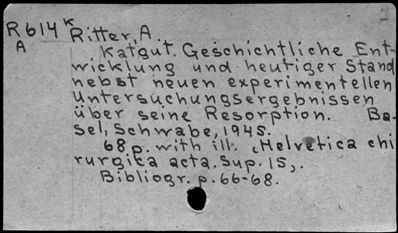 R614K Ritter, A.
A Katgut. Geschichtliche Ent-
wicklung und heutiger Stand
nebst neuen experimentellen
Untersuchungsergebnissen
über seine Resorption. Ba-
sel, Schwabe, 1945.
68p. with ill. (Helvetica chi
rurgica acta. Sup. 15,.
Bibliogr. p. 66-68.